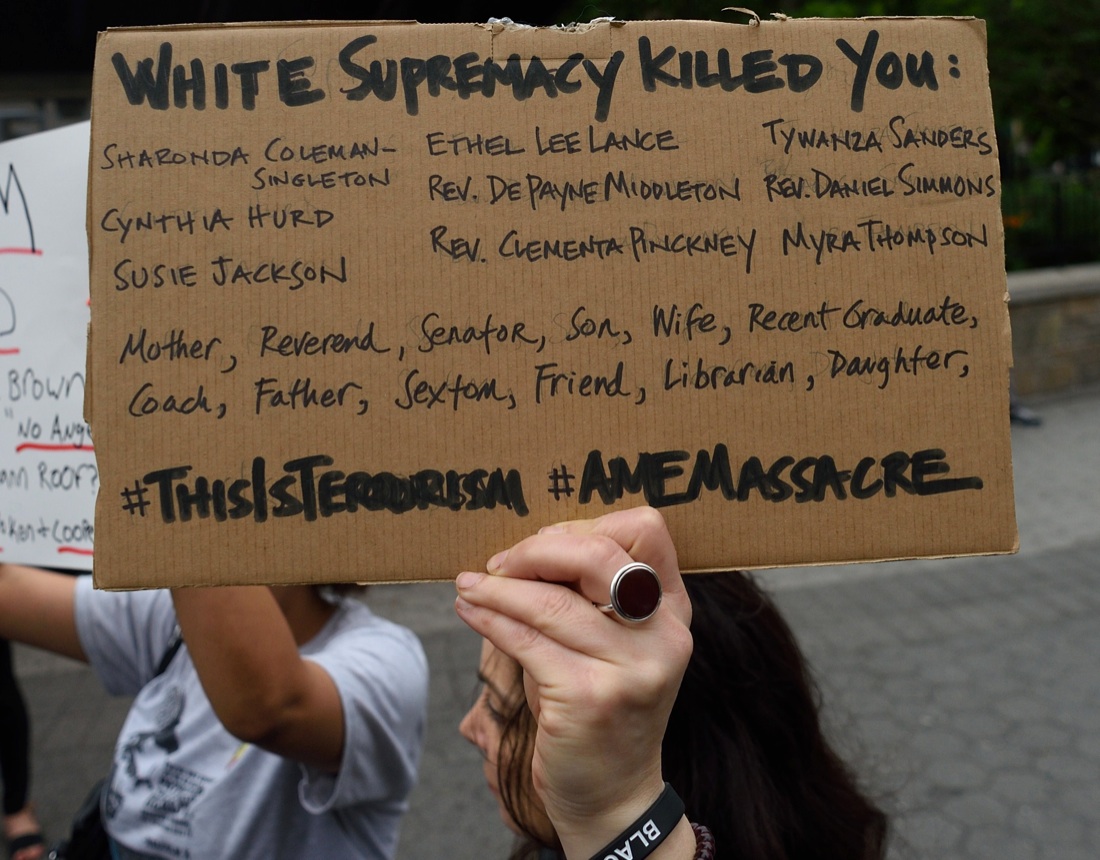 WHITE SUPREMACY KILLED YOU:
SHARONDA COLEMAN-
SINGLETON
CYNTHIA HURD
SUSIE JACKSON
ETHEL LEE LANCE
REV. DEPAYNE MIDDLETON
REV. CLEMENTA PINCKNEY
TYWANZA SANDERS
REV. DANIEL SIMMONS
MYRA THOMPSON
Mother, Reverend, Senator, Son, Wife, Recent Graduate,
Coach, Father, Sexton, Friend, Librarian, Daughter,
#THISISTERRORISM #AMEMASSACRE
M
D
BROWN
"NO ANGE
ANN ROOF?
BLAC